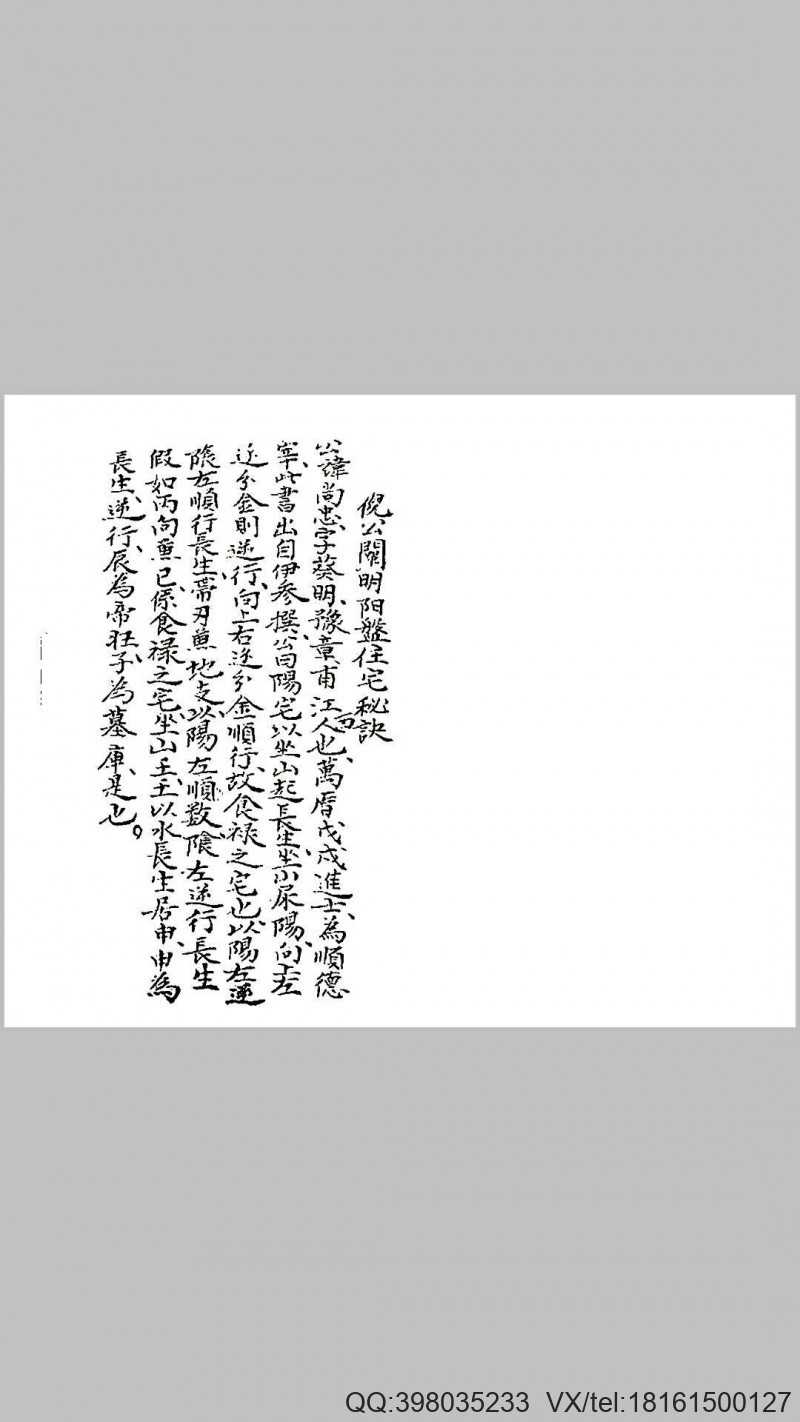 倪公闡明阳盤住宅秘訣
公諱尚忠字葵明、豫章甫江人也、萬厝戊戌進士、為順德
宰、此書出自伊參撰、公曰陽宅以坐山起長生、坐山屎陽、向上左
逆分金則逆行、向上右逆分金順行、故食禄之宅也、以陽左逆
陰左順行長生、帶刃蕙地支、以陽左順数、陰左逆行長生
假如丙向蕙巳、係食禄之宅、坐山壬、壬以水長生居申、申為
長生、逆行、辰為帝旺、子為墓庫、是也。
QQ:398035233 VX/tel:18161500127